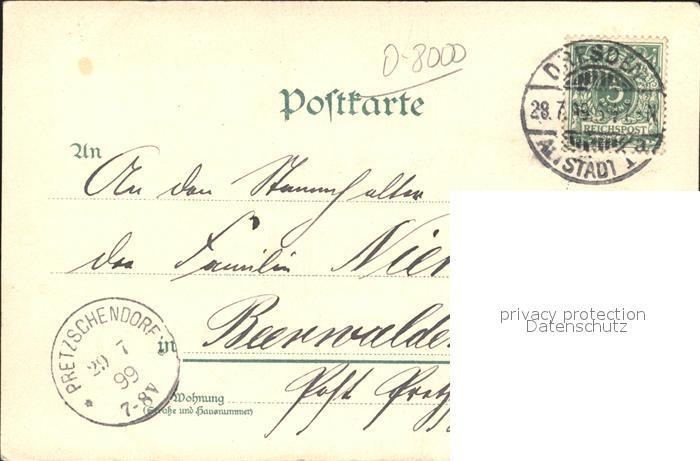 D-8000
Postkarte
DRESDEN
28.7.99. 5-6 N
ALTSTADT 1
5
REICHSPOST
An
An den Stammhalter
der Familie Nier
privacy protection
Datenschutz
PRETZSCHENDORF
29 7
99
7-8V
in Beerwalde
Wohnung
(Straße und Hausnummer)
Post Pretz